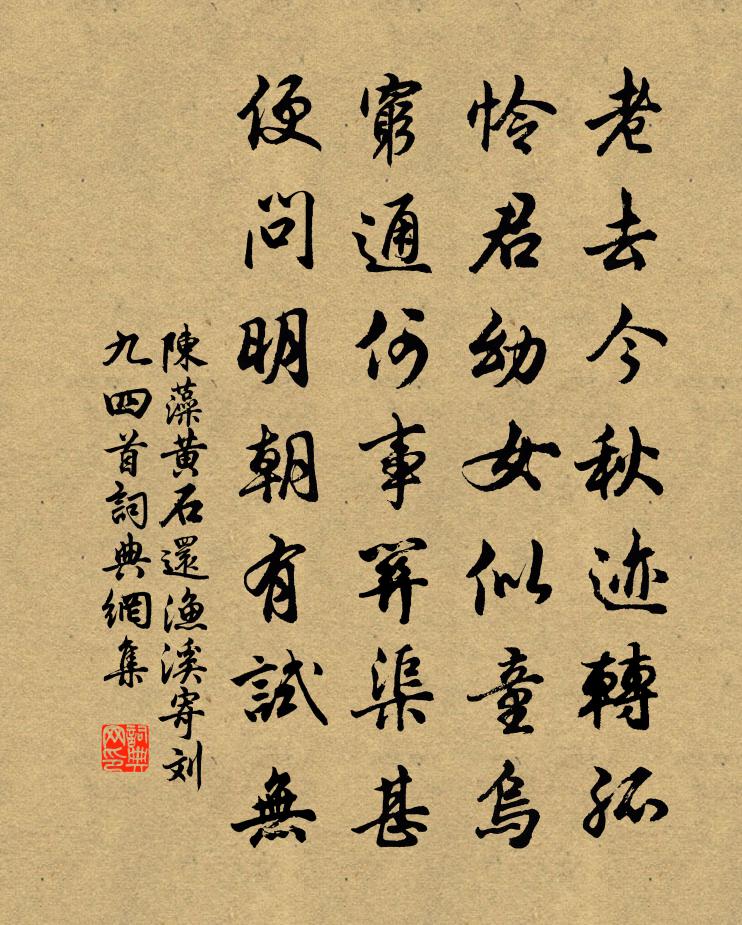 老去今秋迹轉孤
怜君幼女似童烏
窮通何事筭渠甚
便問明朝有試無
陳藻黄石還漁溪寄刘
九四首詞典網集
詞典
网印